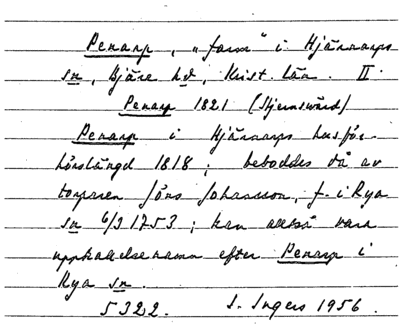 Penarp, „farm" i Hjärnarps
sn, Bjäre hd, Krist. län. II.
Penarp 1821 (Stjernswärd)
Penarp i Hjärnarps husför-
hörslängd 1818; beboddes då av
torparen Jöns Johansson, f. i Rya
sn 6/3 1753; kan alltså vara
uppkallelsenamn efter Penarp i
Rya sn.
5322. S. Ingers 1956.